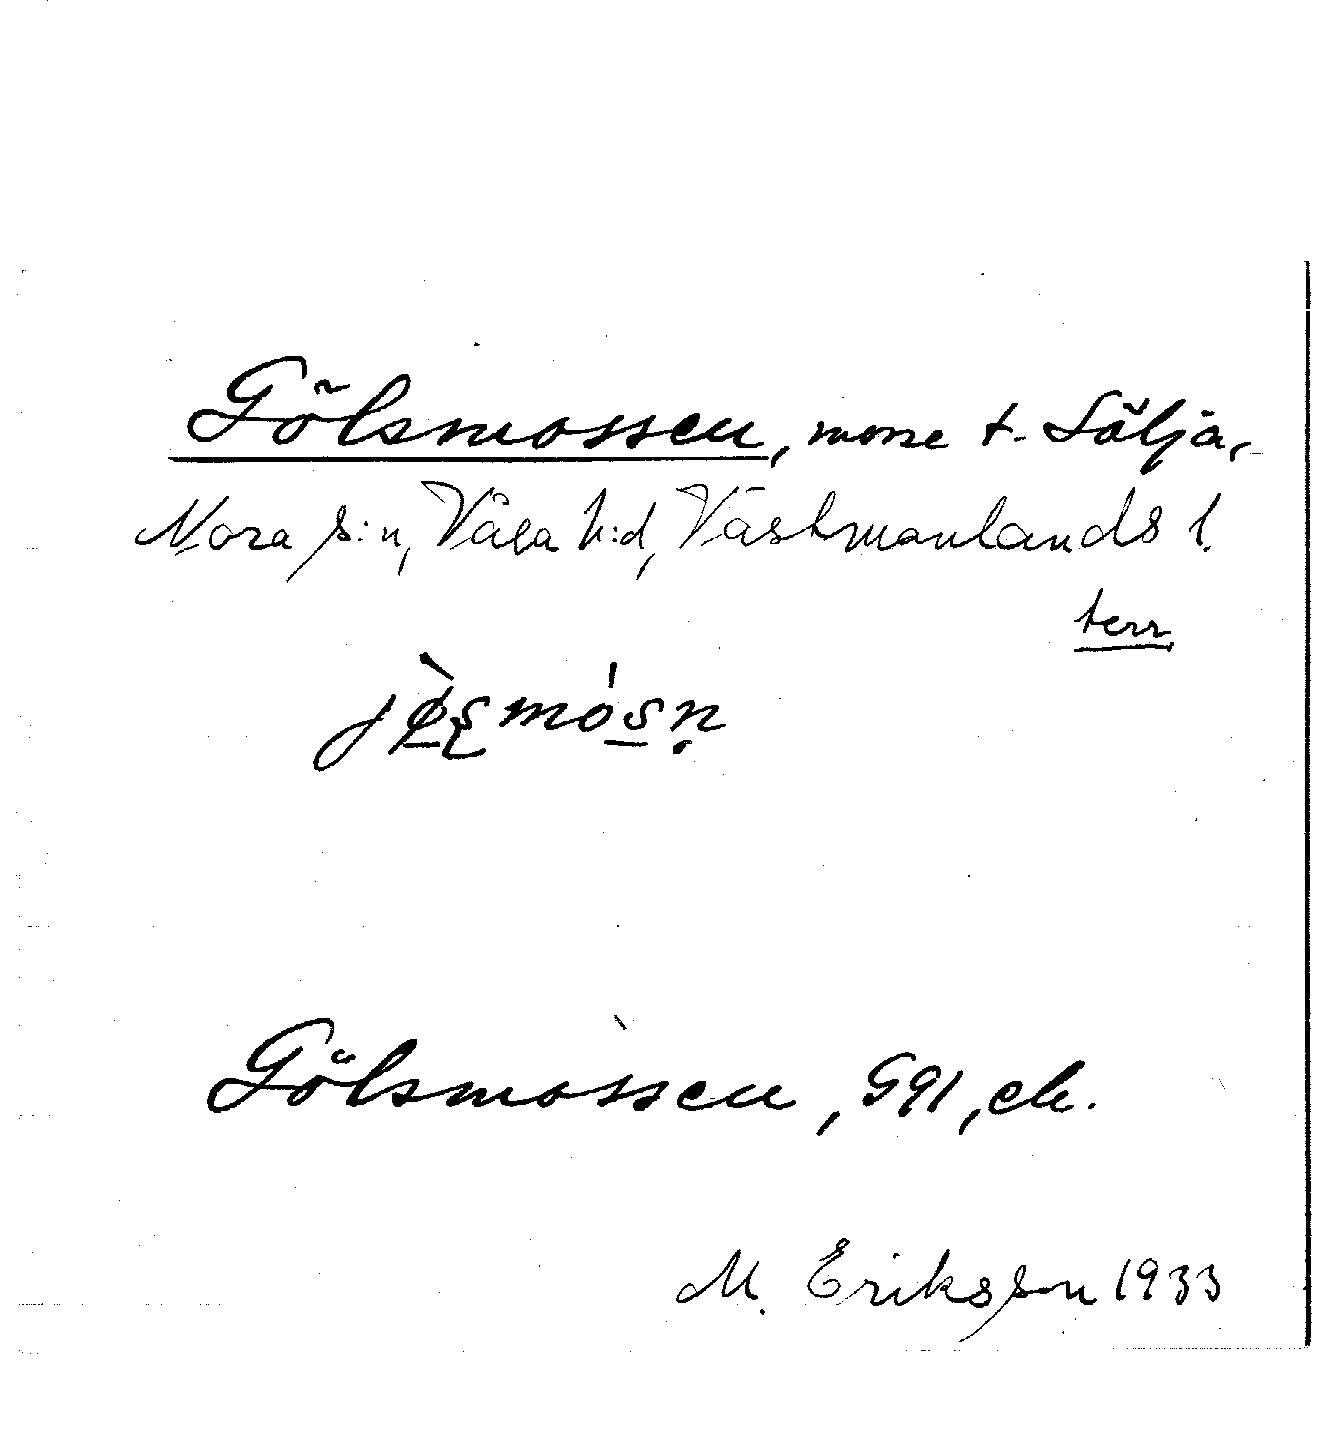 Gölsmossen, mosse t. Sälja,
Nora s:n, Våla h:d, Västmanlands l.
terr.
Gölsmossen, 591, ek.
M. Eriksson 1933